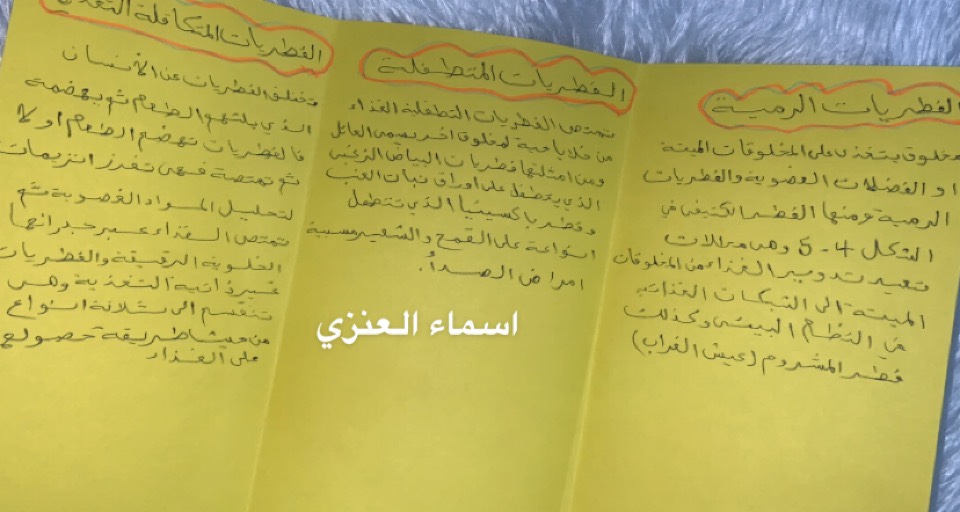 الفطريات الرمية
مخلوق يتغذى على المخلوقات الميتة
او الفضلات العضوية والفطريات
الرمية ومنها الفطر الكتيفي في
الشكل 4-5 وهي محللات
تعيد تدوير الغذاء من المخلوقات
الميتة الى الشبكات الغذائية
في النظام البيئي وكذلك
فطر المشروم (عيش الغراب)
الفطريات المتطفلة
تمتص الفطريات التطفلية الغذاء
من خلايا حية لمخلوق اخر يسمى العائل
ومن امثلتها فطريات البياض الزغبي
الذي يتطفل على اوراق نبات العنب
وفطر باكسينيا الذي تتطفل
انواعة على القمح والشعير مسببة
امراض الصدأ.
الفطريات المتكافلة
وتختلق الفطريات عن الانسان
الذي يلتهم الطعام ثم يهضمة
فالفطريات تهضم الطعام اولا
ثم تمتصة فهي تفرز انزيمات
لتحليل المواد العضوية ثم
تمتص الغذاء عبر جدرانها
الخلوية الرقيقة والفطريات
غير ذاتية التغذية وهي
تنقسم الى ثلاثة انواع
من حيث طريقة حصولها
على الغذاء
اسماء العنزي